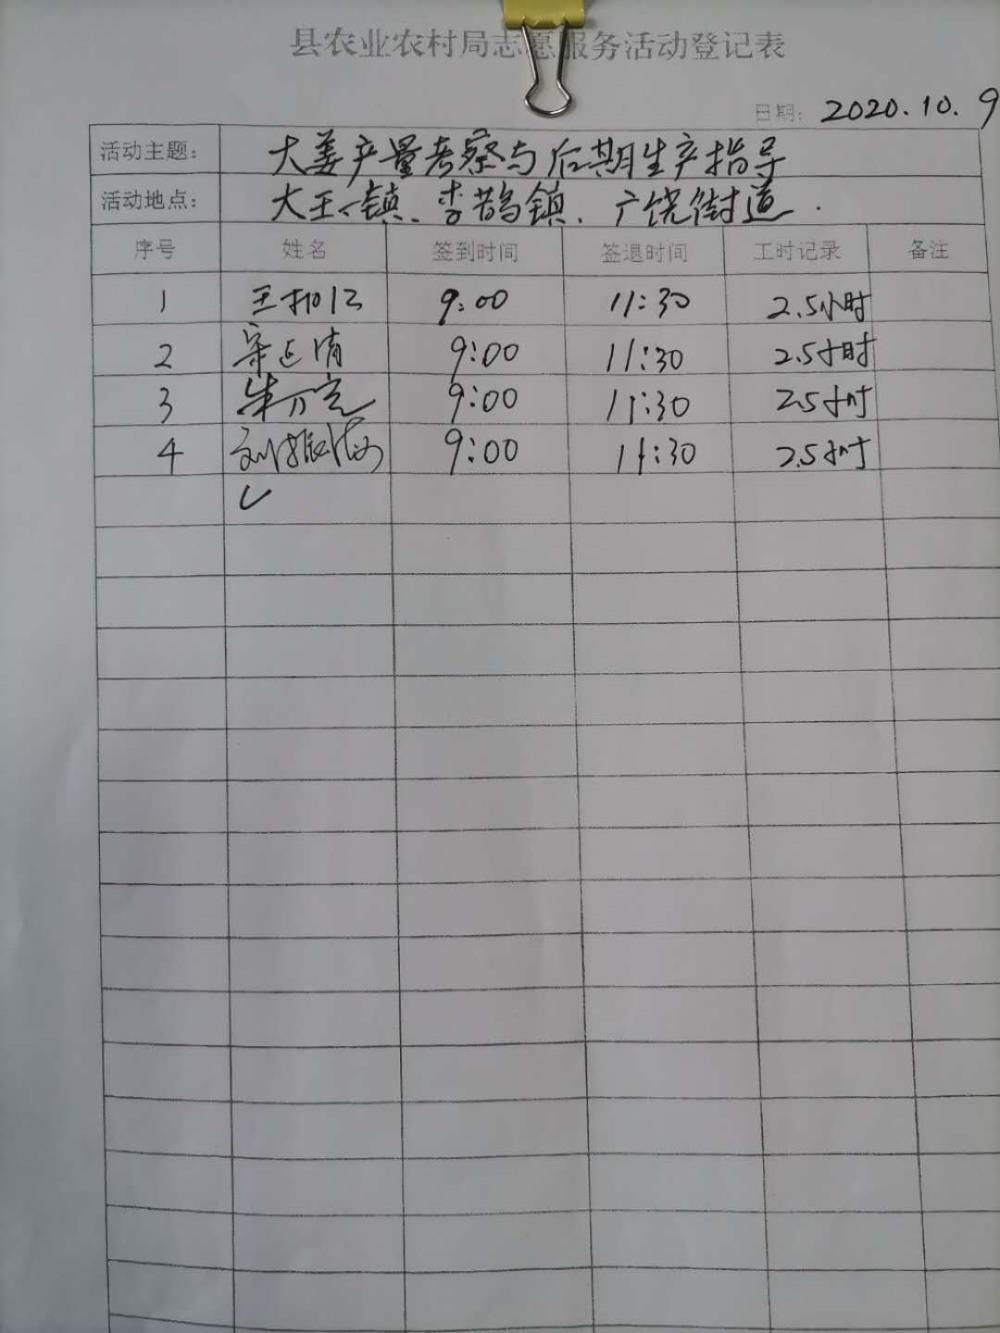 县农业农村局志愿服务活动登记表
日期: 2020.10.9
活动主题: 大姜产量考察与后期生产指导
活动地点: 大王镇、李鹊镇、广饶街道.
序号 姓名 签到时间 签退时间 工时记录 备注
1 9:00 11:30 2.5小时
2 9:00 11:30 2.5小时
3 9:00 11:30 2.5小时
4 9:00 11:30 2.5小时